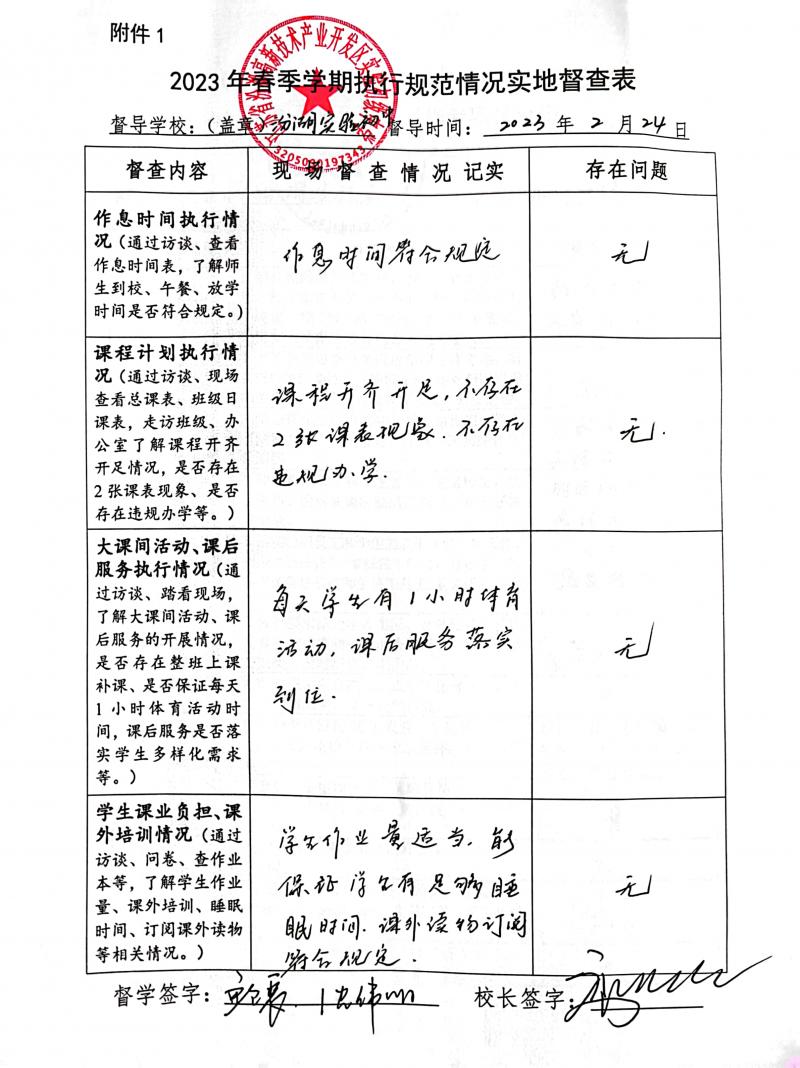 附件 1
2023 年春季学期执行规范情况实地督查表
督导学校：（盖章）汾湖实验初中 督导时间： 2023 年 2 月 24 日
3205000197343
督查内容 现 场 督 查 情 况 记实 存在问题
作息时间执行情
况（通过访谈、查看
作息时间表，了解师
生到校、午餐、放学
时间是否符合规定。）
作息时间符合规定
无
课程计划执行情
况（通过访谈、现场
查看总课表、班级日
课表，走访班级、办
公室了解课程开齐
开足情况，是否存在
2 张课表现象、是否
存在违规办学等。）
课程开齐开足，不存在
2张课表现象．不存在
违规办学．
无．
大课间活动、课后
服务执行情况（通
过访谈、踏看现场，
了解大课间活动、课
后服务的开展情况，
是否存在整班上课
补课、是否保证每天
1 小时体育活动时
间，课后服务是否落
实学生多样化需求
等。）
每天学生有1小时体育
活动，课后服务落实
到位．
无
学生课业负担、课
外培训情况（通过
访谈、问卷、查作业
本等，了解学生作业
量、课外培训、睡眠
时间、订阅课外读物
等相关情况。）
学生作业量适当．能
保证学生有足够睡
眠时间．课外读物订阅
符合规定．
无
督学签字：
校长签字：